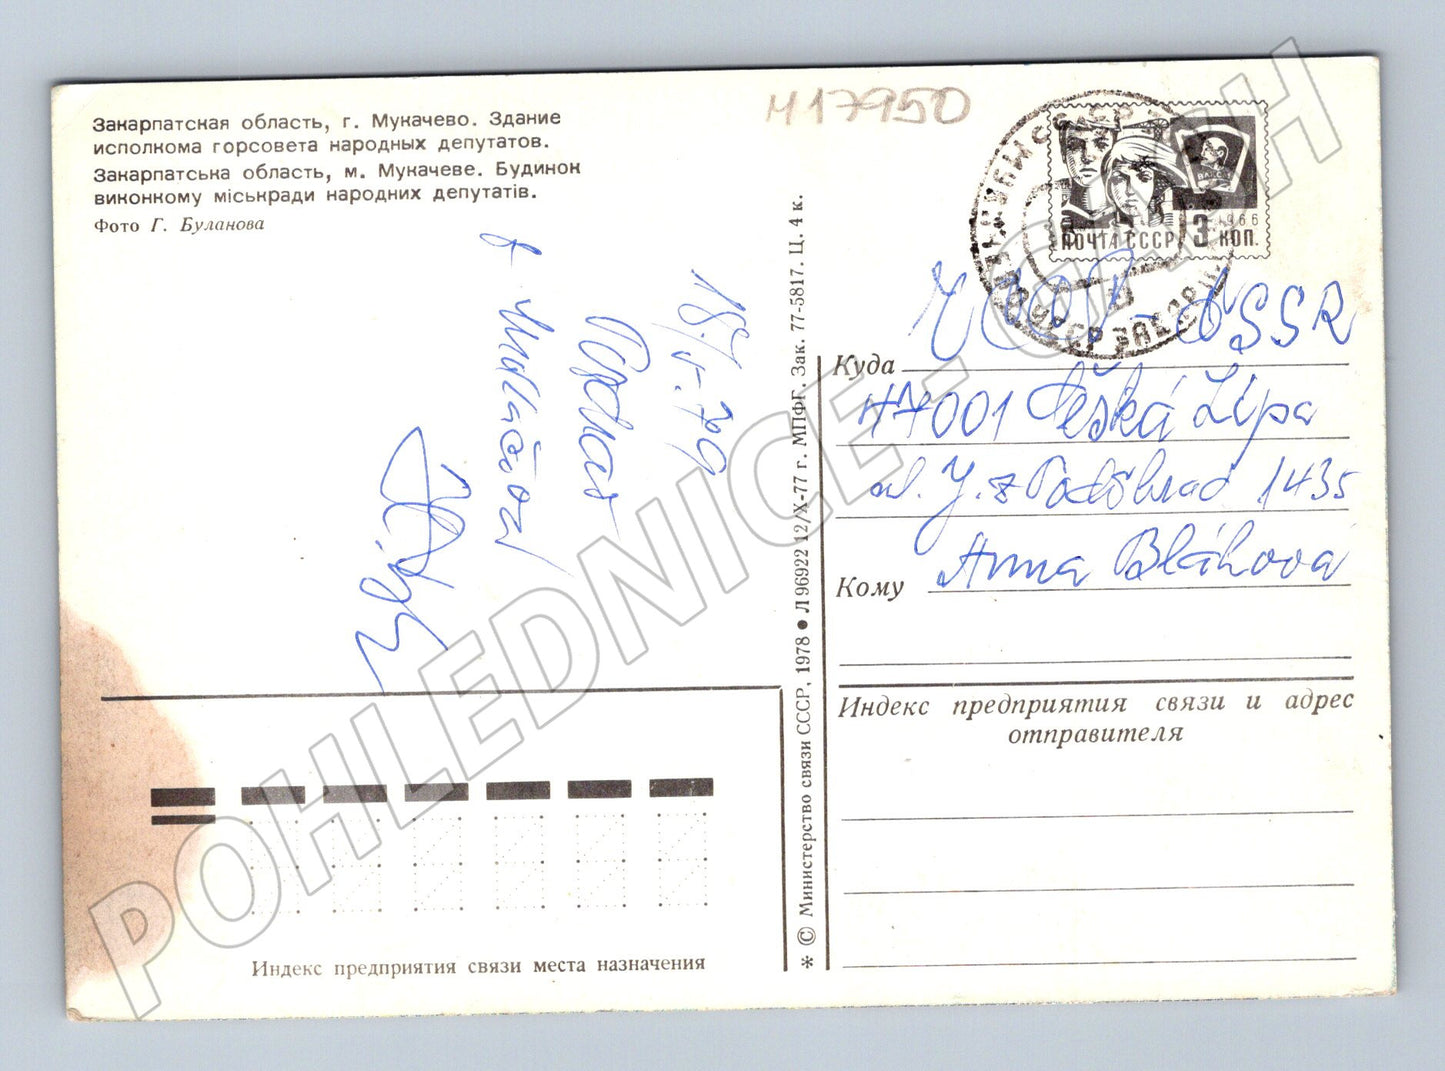 Закарпатская область, г. Мукачево. Здание
исполкома горсовета народных депутатов.
Закарпатська область, м. Мукачеве. Будинок
виконкому міськради народних депутатів.
Фото Г. Буланова
417950
ПОЧТА СССР
3 КОП.
1966
ВЛКСМ
18/V.79
Pozdrav
z Mukačova
* © Министерство связи СССР, 1978 ● Л 96922 12/X-77 г. МПФГ. Зак. 77-5817. Ц. 4 к.
ČSSR
Куда
47001 Česká Lípa
ul. J. z Poděbrad 1435
Кому Anna Bláhová
Индекс предприятия связи и адрес
отправителя
Индекс предприятия связи места назначения
POHLEDNICE-GASH